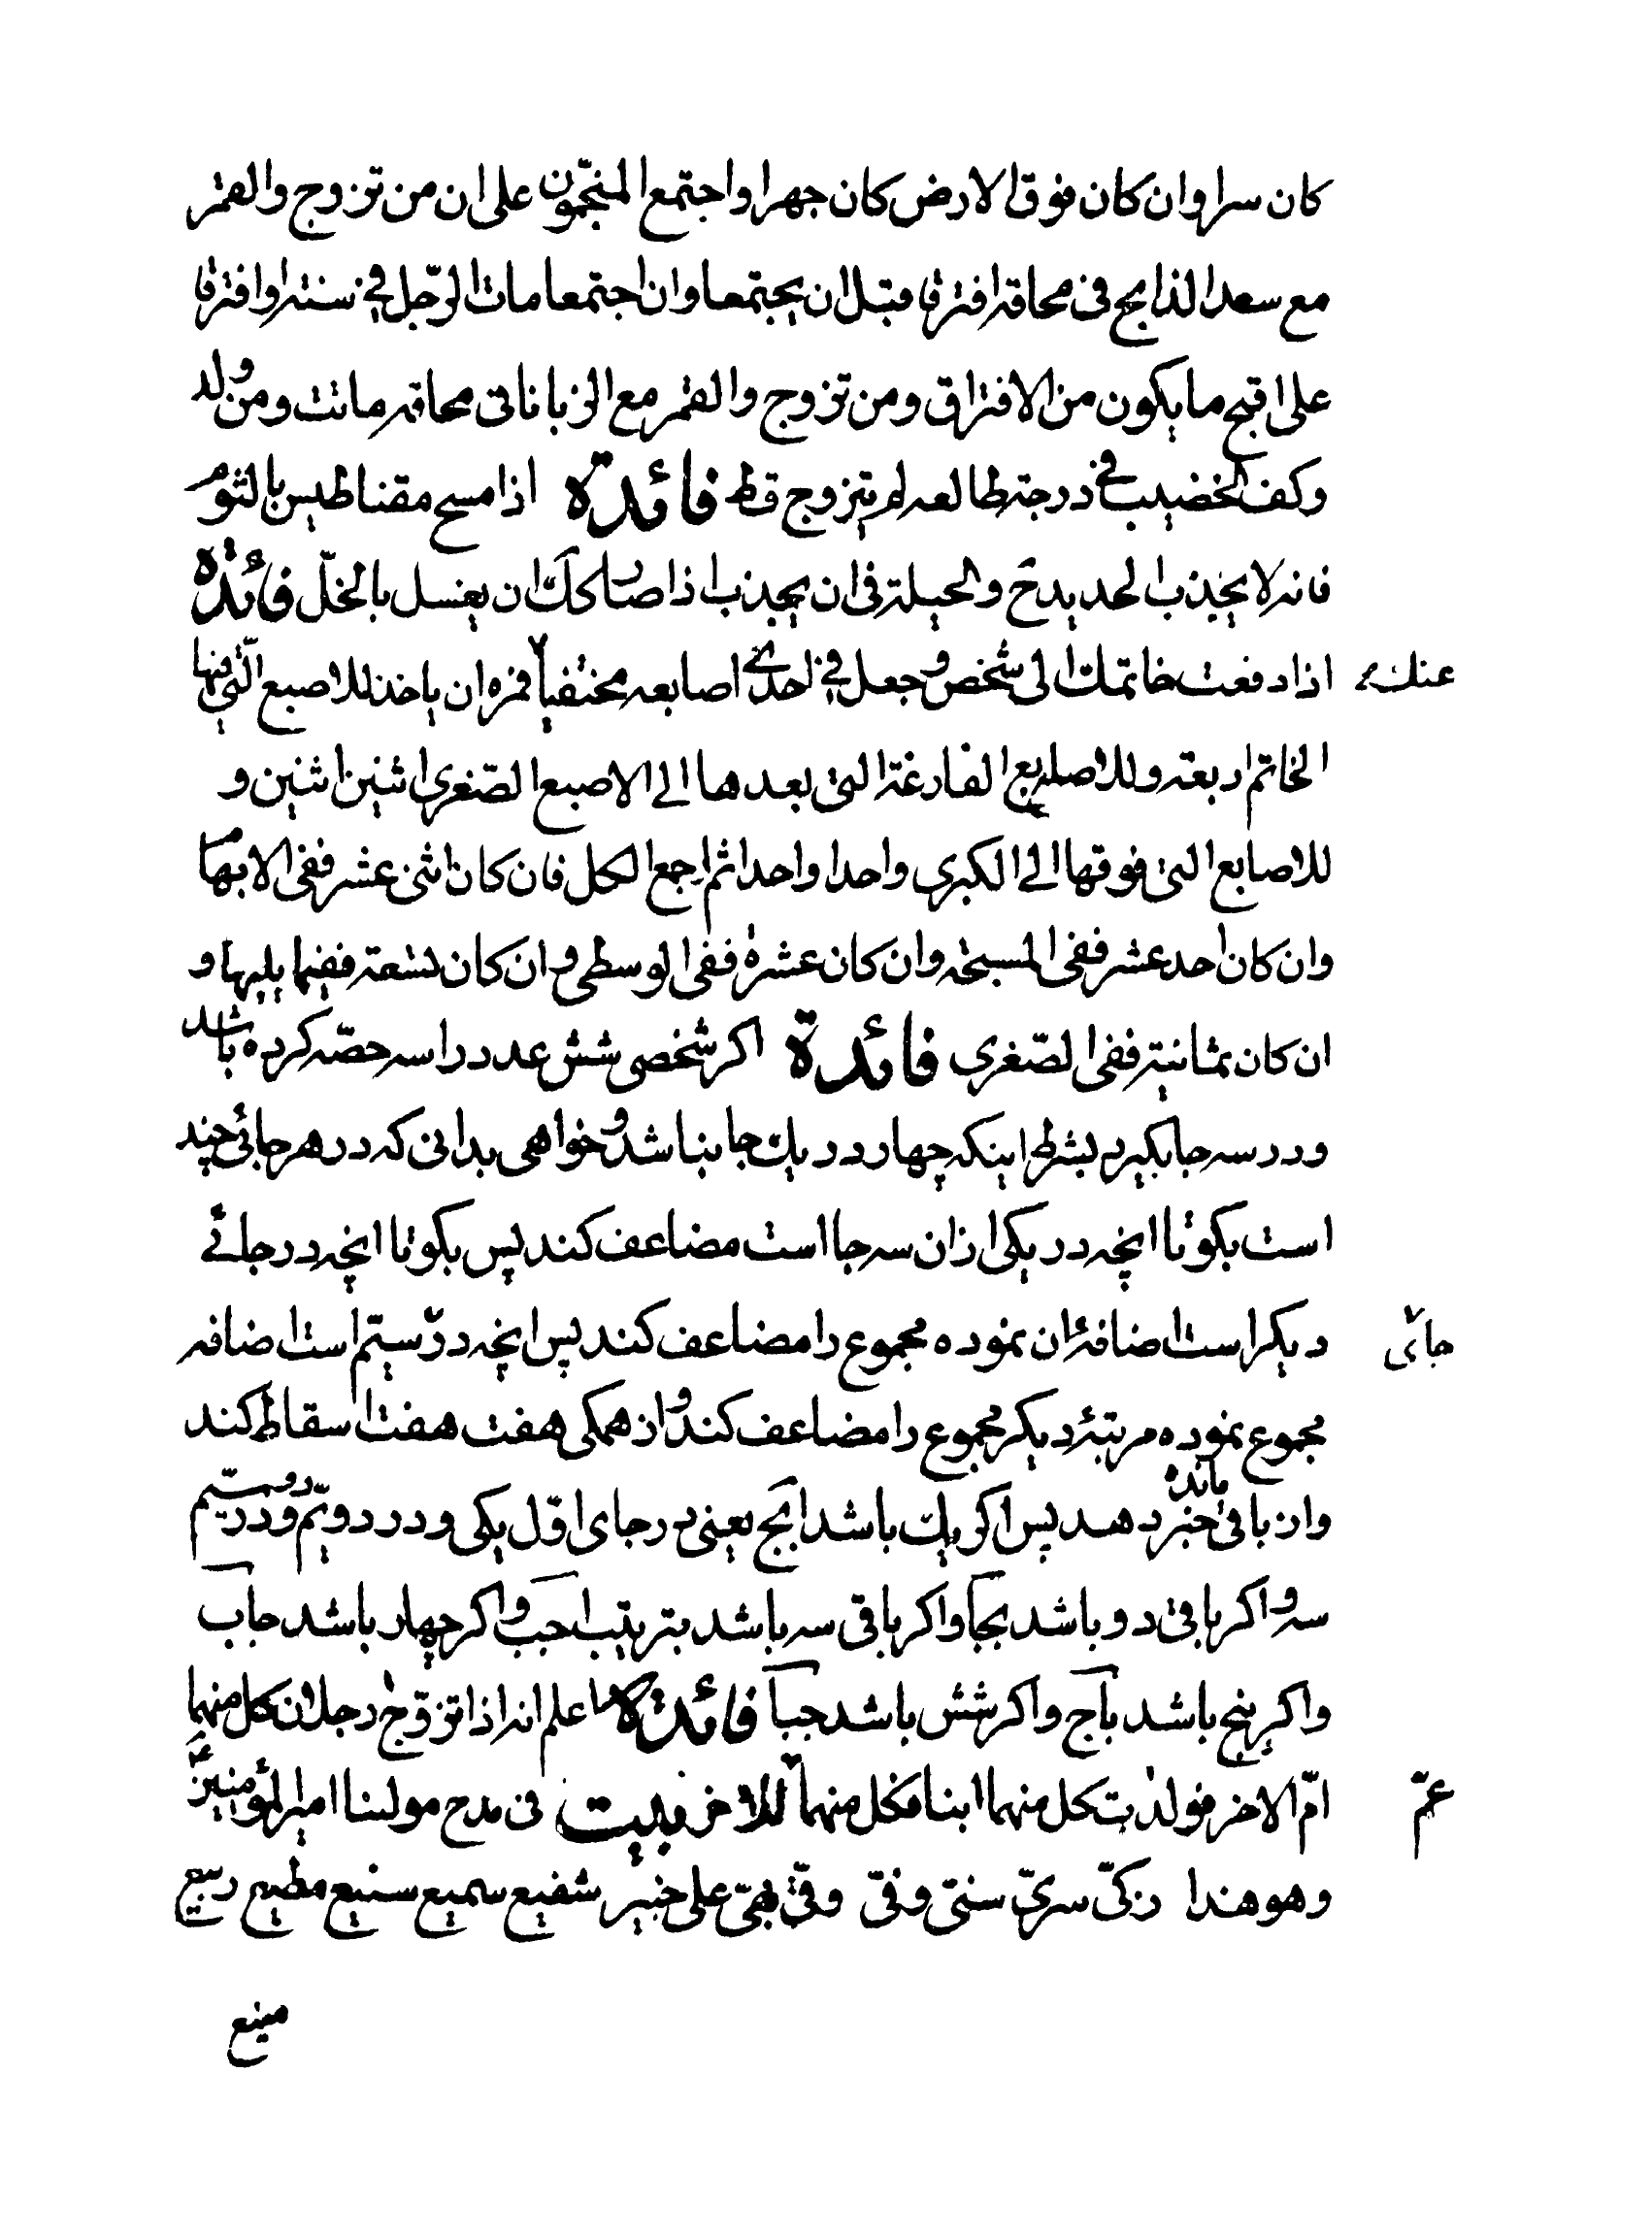 كان سرا وان كان فوق الارض كان جهرا واجتمع المنجّمون على ان من تزوج والقمر
مع سعد الذابح فى محاقه افترقا قبل ان يجتمعا وان اجتمعا مات الرّجل فى سنته او افترقا
على اقبح ما يكون من الافتراق ومن تزوج والقمر مع الزبانا فى محاقه ماتت ومن ولد
وكف الخضيب فى درجة طالعه لم يتزوج قط فائدة اذا مسح مقناطيس بالثوم
فانه لا يجذب الحديد ح والحيلة فى ان يجذب اذا صار كك ان يغسل بالخلّ فائدة
اذا دفعت خاتمك الى شخص وجعل فى احدى اصابعه مختفيا فمره ان ياخذ للاصبع الّتى فيها
عنك
الخاتم اربعة وللاصابع الفارغة التى بعدها الى الاصبع الصّغرى اثنين اثنين و
للاصابع التى فوقها الى الكبرى واحدا واحدا ثم اجمع الكل فان كان اثنى عشر ففى الابهام
وان كان احد عشر ففى المسبحة وان كان عشرة ففى الوسطى وان كان تسعة ففيما يليها و
ان كان ثمانية ففى الصّغرى فائدة اكر شخصى شش عدد را سه حصّه كرده باشد
ودر سه جا بگيرد بشرط اينكه چهار در يك جا نباشد و خواهى بدانى كه در هر جائى چند
است بكو تا انچه در يكى از ان سه جا است مضاعف كند پس بكو تا انچه در جائے
ديكر است اضافهٔ ان نموده مجموع را مضاعف كند پس انچه در سيّم است اضافه
جاى
مجموع نموده مرتبهٔ ديكر مجموع را مضاعف كند و از همكى هفت هفت اسقاط كند
واز باقى مانده خبر دهد پس اكر يك باشد ابج يعنى در جاى اوّل يكى و در دويّم دو و در سيّم
سه و اكر باقى دو باشد بجا واكر باقى سه باشد بترتيب اجب و اكر چهار باشد جاب
واكر پنج باشد باج واكر شش باشد جبا فائدة اعلم انه اذا تزوّج رجلان كل منهما
امّ الاخر فولدت كل منهما ابنا فكل منهما للاخر بيت فى مدح مولينا امير المؤمنين ع
عمّ
وهو هذا زكىّ سرىّ سنىّ وفىّ وفىّ بهىّ على خبير شفيع سميع سنيع مطيع ربيع
منيع